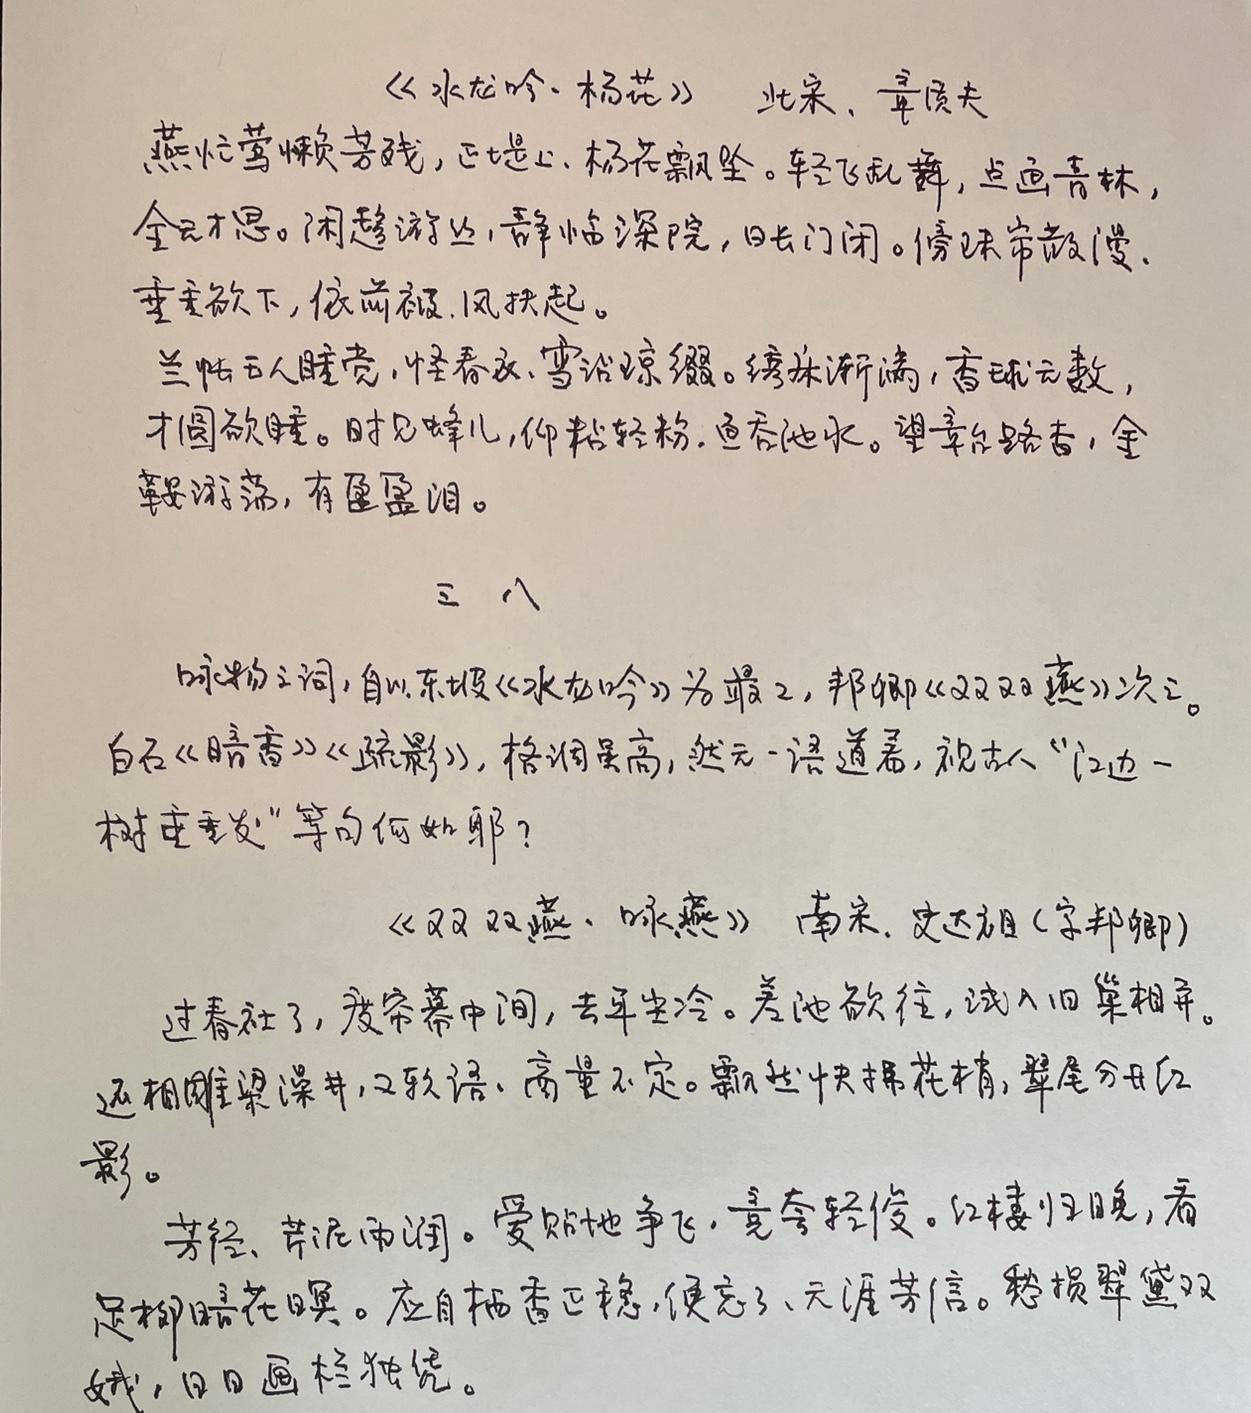 《水龙吟·杨花》 北宋、章质夫
燕忙莺懒芳残，正堤上、杨花飘坠。轻飞乱舞，点画青林，
全无才思。闲趁游丝，静临深院，日长门闭。傍珠帘散漫、
垂垂欲下，依前被、风扶起。
兰帐玉人睡觉，怪春衣、雪沾琼缀。绣床渐满，香球无数，
才圆欲睡。时见蜂儿，仰粘轻粉、鱼吞池水。望章台路杳，金
鞍游荡，有盈盈泪。
三八
咏物之词，自以东坡《水龙吟》为最工，邦卿《双双燕》次之。
白石《暗香》《疏影》，格调虽高，然无一语道着，视古人“江边一
树垂垂发”等句何如耶？
《双双燕·咏燕》 南宋、史达祖（字邦卿）
过春社了，度帘幕中间，去年尘冷。差池欲往，试入旧巢相并。
还相雕梁澡井，又软语、商量不定。飘然快拂花梢，翠尾分开红
影。
芳径、芹泥雨润。爱贴地争飞，竟夸轻俊。红楼归晚，看
足柳暗花暝。应自栖香正稳，便忘了、天涯芳信。愁损翠黛双
蛾，日日画栏独凭。